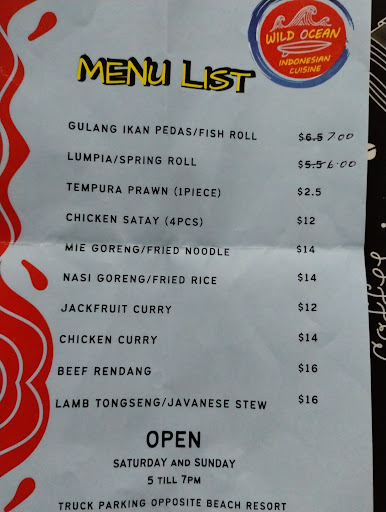 WILD OCEAN
INDONESIAN
CUISINE
MENU LIST
GULANG IKAN PEDAS/FISH ROLL $6.5 7.00
LUMPIA/SPRING ROLL $5.5 6.00
TEMPURA PRAWN (1PIECE) $2.5
CHICKEN SATAY (4PCS) $12
MIE GORENG/FRIED NOODLE $14
NASI GORENG/FRIED RICE $14
JACKFRUIT CURRY $12
CHICKEN CURRY $14
BEEF RENDANG $16
LAMB TONGSENG/JAVANESE STEW $16
OPEN
SATURDAY AND SUNDAY
5 TILL 7PM
TRUCK PARKING OPPOSITE BEACH RESORT